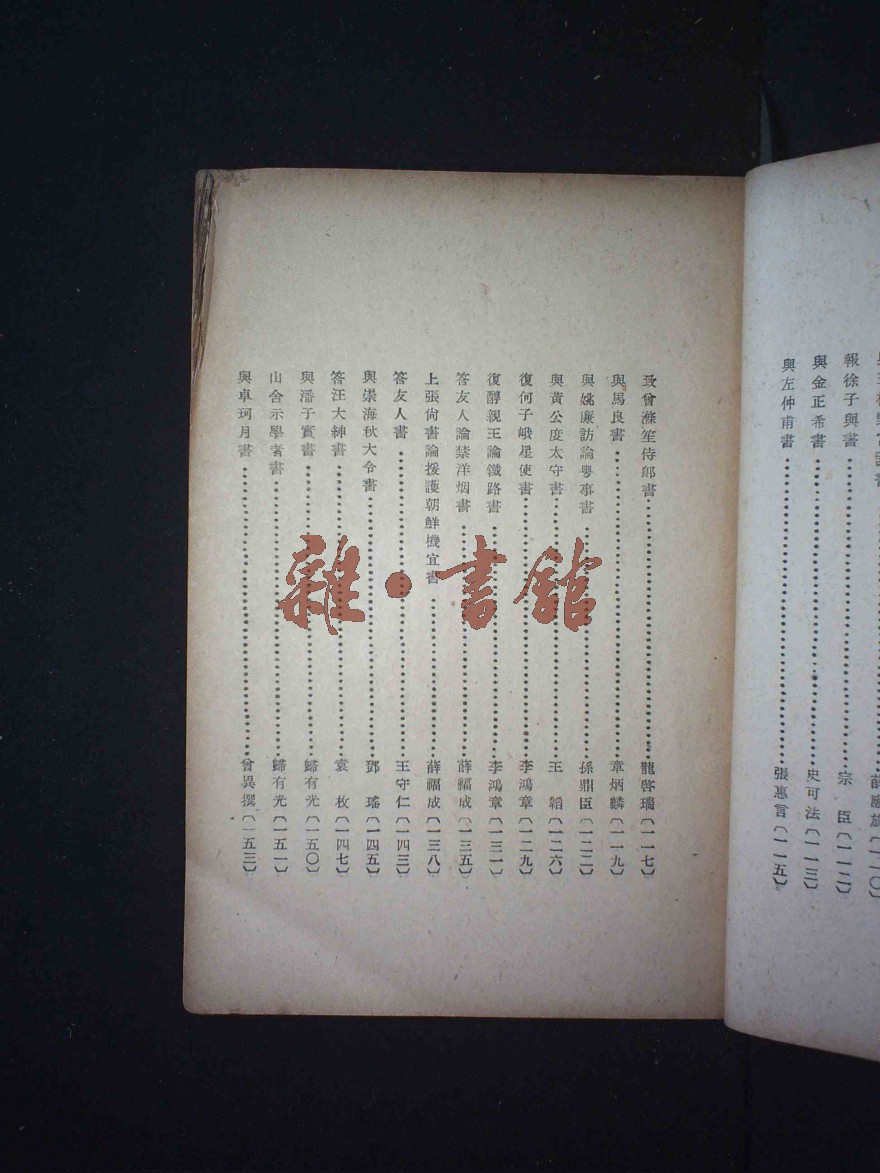 報徐子與書 宗臣〔一一二〕
與金正希書 史可法〔一一三〕
與左仲甫書 張惠言〔一一五〕
致曾滌笙侍郎書 龍啓瑞〔一一七〕
與馬良書 章炳麟〔一一九〕
與姚廉訪論粤事書 孫鼎臣〔一二二〕
與黃公度太守書 王韜〔一二六〕
復何子峨星使書 李鴻章〔一二九〕
復醇親王論鐵路書 李鴻章〔一三一〕
答友人論禁洋烟書 薛福成〔一三五〕
上張尙書論援護朝鮮機宜書 薛福成〔一三八〕
答友人書 王守仁〔一四三〕
與崇海秋大令書 鄧瑤〔一四五〕
答汪大紳書 袁枚〔一四七〕
與潘子實書 歸有光〔一五〇〕
山舍示學者書 歸有光〔一五一〕
與卓珂月書 曾異撰〔一五三〕
雜·書館